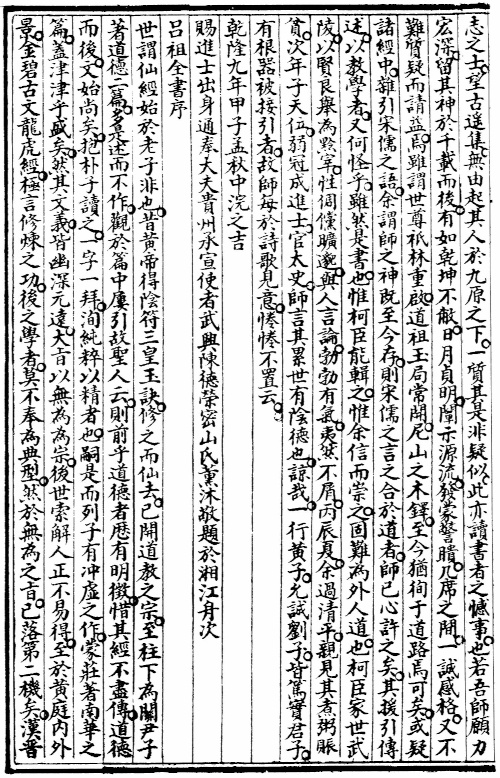 志之士望古遥集無由起其人於九原之下一質其是非疑似此亦讀書者之憾事也若吾師願力
宏深留其神於千載而後有如乾坤不敝日月貞明闡示源流發蒙警聵几席之間一誠感格又不
難質疑而請益焉雖謂世尊祇林重啟道祖玉局常開尼山之木鐸至今猶徇于道路焉可矣或疑
諸經中雜引宋儒之語余謂師之神既至今存則宋儒之言之合於道者師已心許之矣其援引傳
述以教學者又何怪乎雖然是書也惟柯臣能輯之惟余信而崇之固難為外人道也柯臣家世武
陵以賢良舉為黔宰性倜儻曠邈與人言論勃勃有氣夷然不屑丙辰夏余過清平親見其煮粥賑
貧次年子天伍弱冠成進士官太史師言其累世有陰德也諒哉一行黄子允誠劉子皆篤實君子
有根器被接引者故師每於詩歌見意惓惓不置云
乾隆九年甲子孟秋中浣之吉
賜進士出身通奉大夫貴州承宣使者武興陳德榮密山氏薰沐敬題於湘江舟次
呂祖全書序
世謂仙經始於老子非也昔黄帝得陰符三皇玉訣修之而仙去已開道教之宗至柱下為關尹子
著道德二篇多述而不作觀於篇中屢引故聖人云則前乎道德者歷有明徵惜其經不盡傳道德
而後文始尚矣抱朴子讀之一字一拜洵純粹以精者也嗣是而列子有冲虛之作蒙莊著南華之
篇蓋津津乎盛矣然其文義皆幽深元遠大旨以無為為宗後世索解人正不易得至於黄庭内外
景金碧古文龍虎經極言修煉之功後之學者莫不奉為典型然於無為之旨已落第二機矣漢晉